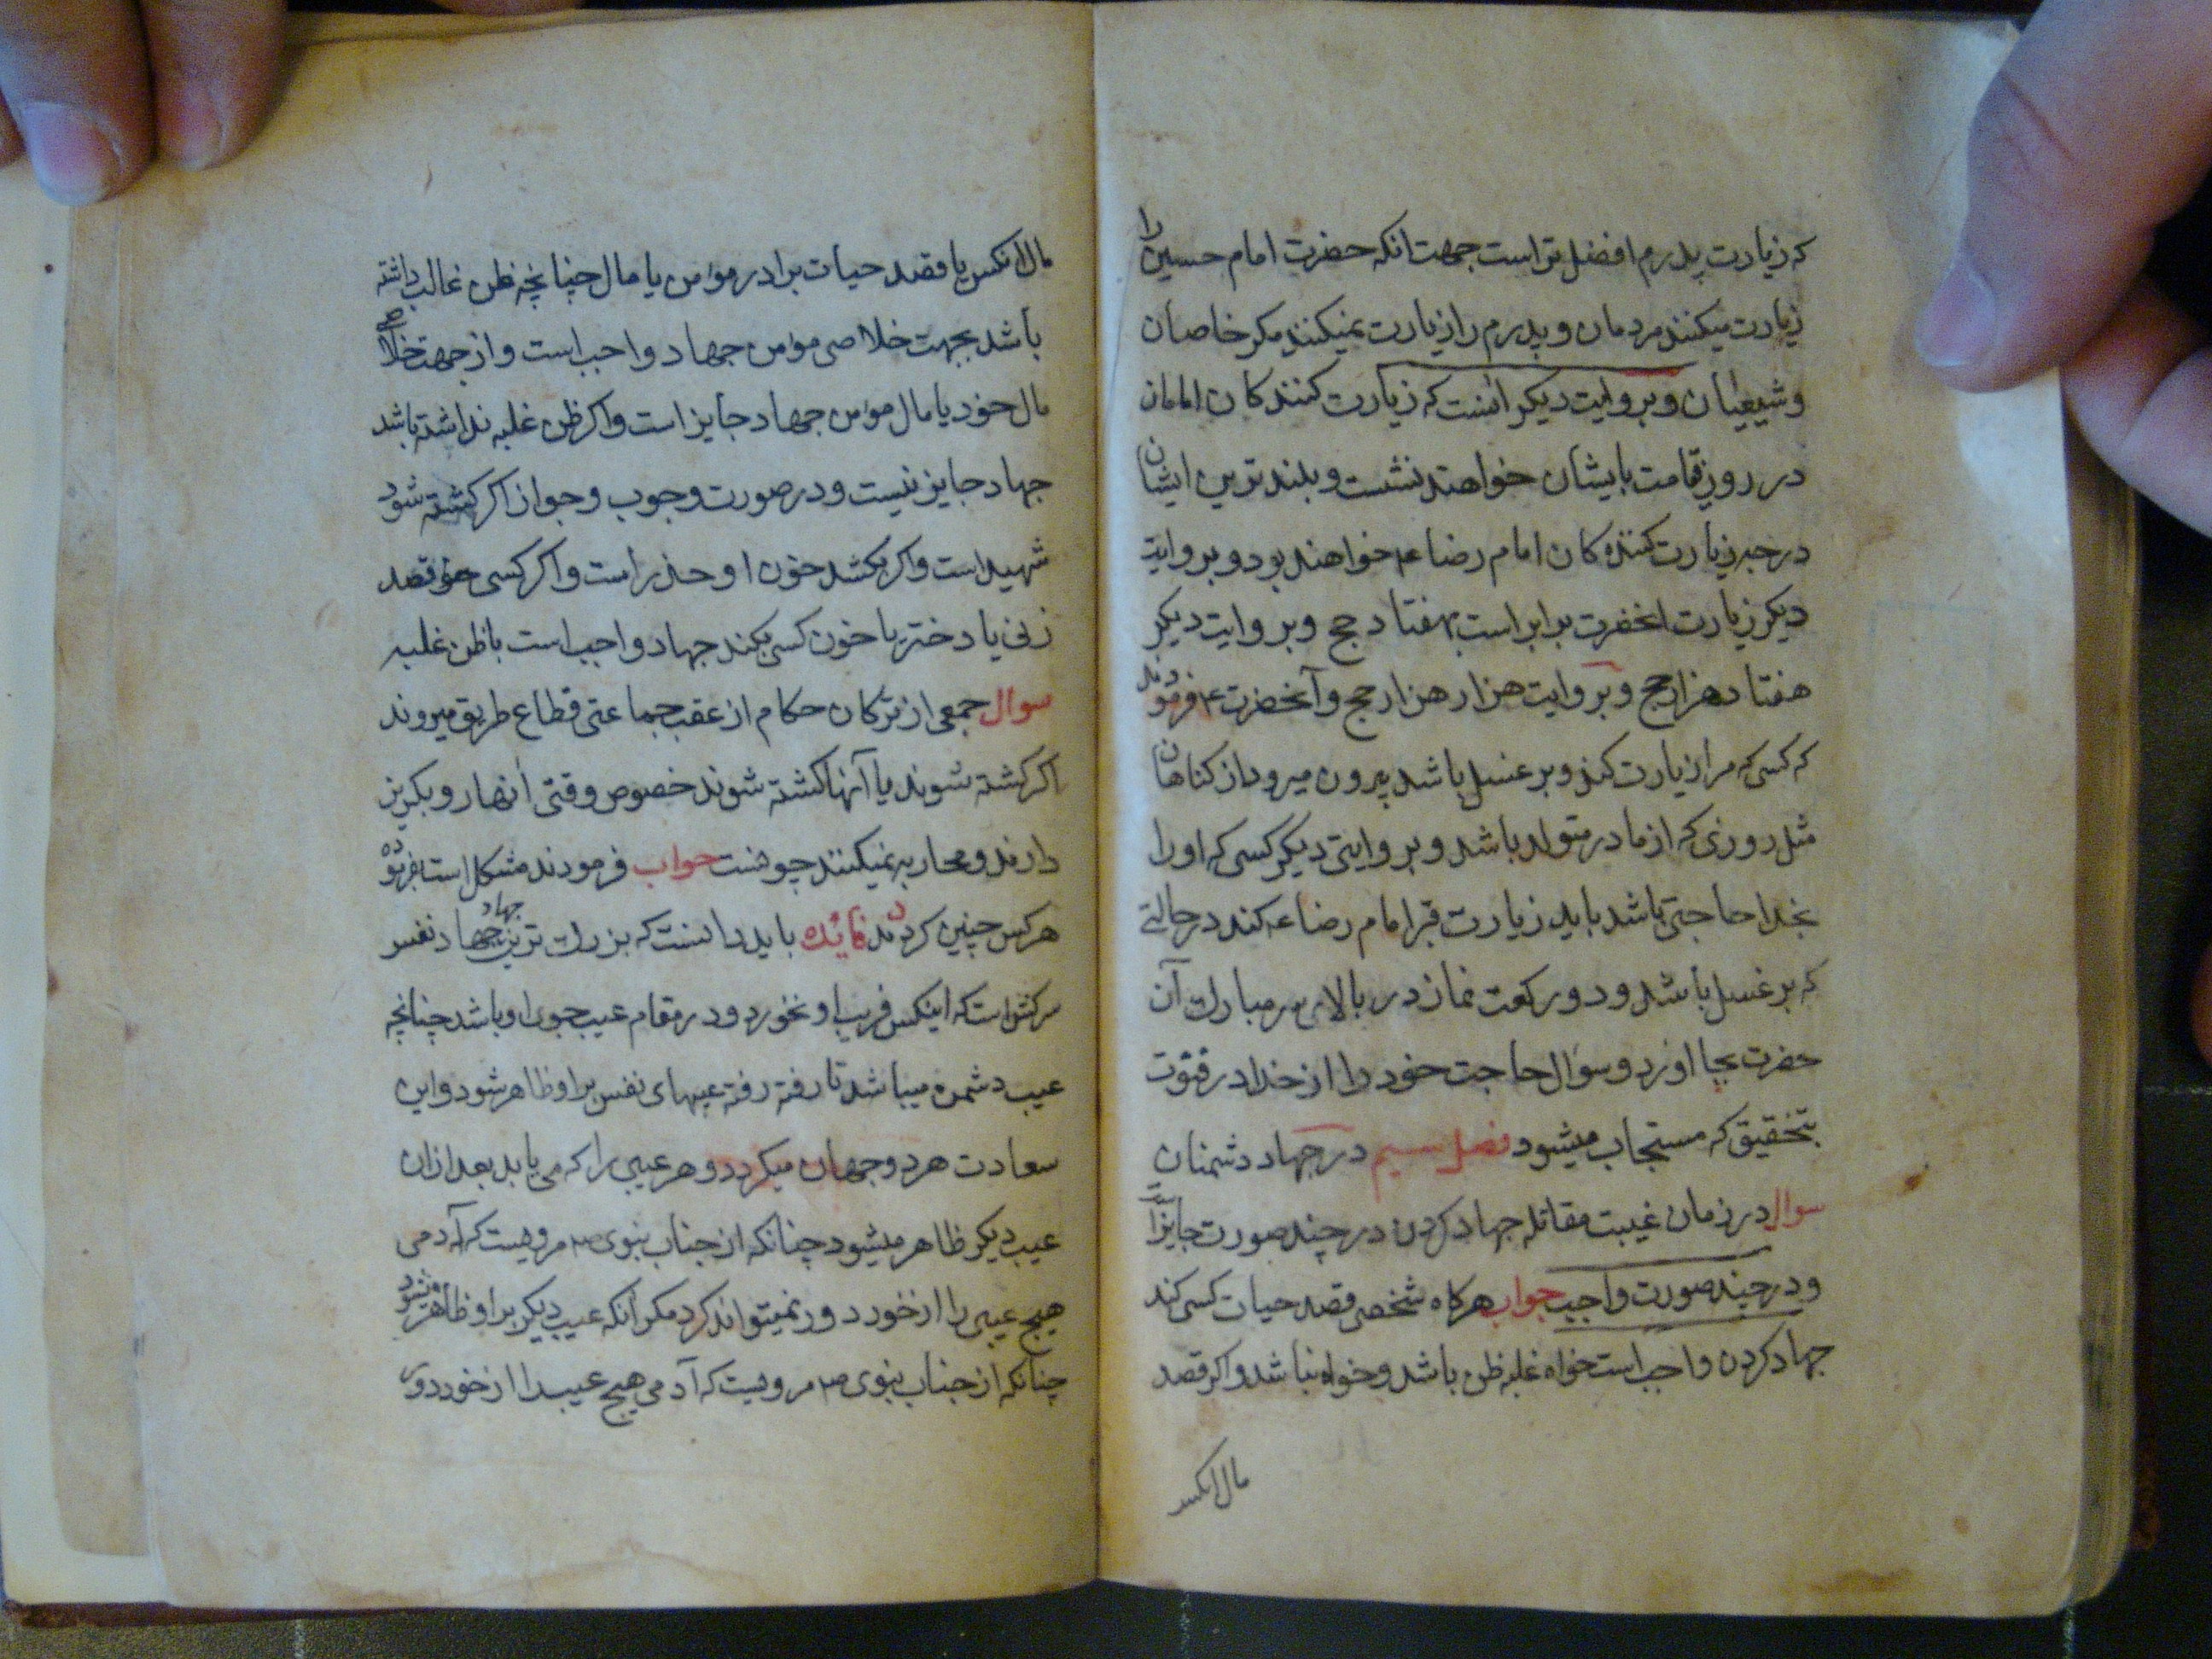 که زیارت پدرم افضل تر است جهت انکه حضرت امام حسین را
زیارت میکنند مردمان و پدرم را زیارت نمیکنند مکر خاصان
و شیعیان و بروایت دیکر انست که زیارت کنندکان امامان
در روز قامت بایشان خواهند نشست و بلند ترین ایشان
درجه زیارت کننده کان امام رضا ع خواهند بود و بروایت
دیکر زیارت انحضرت برابر است بهفتاد حج و بروایت دیکر
هفتاد هزار حج و بروایت هزار هزار حج و آنحضرت ع فرمودند
که کسی که مرا زیارت کند و بر غسل باشد بیرون میرود از کناهان
مثل روزی که از مادر متولد باشد و بروایتی دیکر کسی که او را
بخدا حاجتی باشد باید زیارت قبر امام رضا ع کند در حالتی
که بر غسل باشد و دو رکعت نماز در بالای سر مبارک آن
حضرت بجا اورد و سؤال حاجت خود را از خدا در قنوت
بتحقیق که مستجاب میشود فصل سیم در جهاد دشمنان
سوال در زمان غیبت مقاتله جهاد کردن در چند صورت جایز است
و در چند صورت واجب جواب هرکاه شخصی قصد حیات کسی کند
جهاد کردن واجب است خواه غلبه ظن باشد و خواه نباشد و اکر قصد
مال انکس
مال انکس یا قصد حیات برادر مؤمن یا مال چنانچه ظن غالب داشته
باشد بجهت خلاصی مؤمن جهاد واجب است و از جهت خلاصی
مال خود یا مال مؤمن جهاد جایز است و اکر ظن غلبه نداشته باشد
جهاد جایز نیست و در صورت وجوب و جواز اکر کشته شود
شهید است و اکر بکشد خون او هدر است و اکر کسی قصد
زنی یا دختر یا خون کسی بکند جهاد واجب است با ظن غلبه
سوال جمعی از ترکان حکام از عقب جماعتی قطاع طریق میروند
اکر کشته شوند یا آنها کشته شوند خصوص وقتی انها رو بکریز
دارند و محاربه نمیکنند چونست جواب فرمودند مشکل است بفرموده
هر کس چنین کردند فائده باید دانست که بزرک ترین جهاد جهاد نفس
سرکش است که اینکس فریب او نخورد و در مقام عیب جوی او باشد چنانچه
عیب دشمن میباشد تا رفته رفته عیبهای نفس بر او ظاهر شود و این
سعادت هر دو جهان میکردد و هر عیبی را که می یابد بعد از ان
عیب دیکر ظاهر میشود چنانکه از جناب نبوی ص مرویست که آدمی
هیچ عیبی را از خود دور نمیتواند کرد مکر آنکه عیب دیکر بر او ظاهر میشود
چنانکه از جناب نبوی ص مرویست که آدمی هیچ عیب را از خود دور